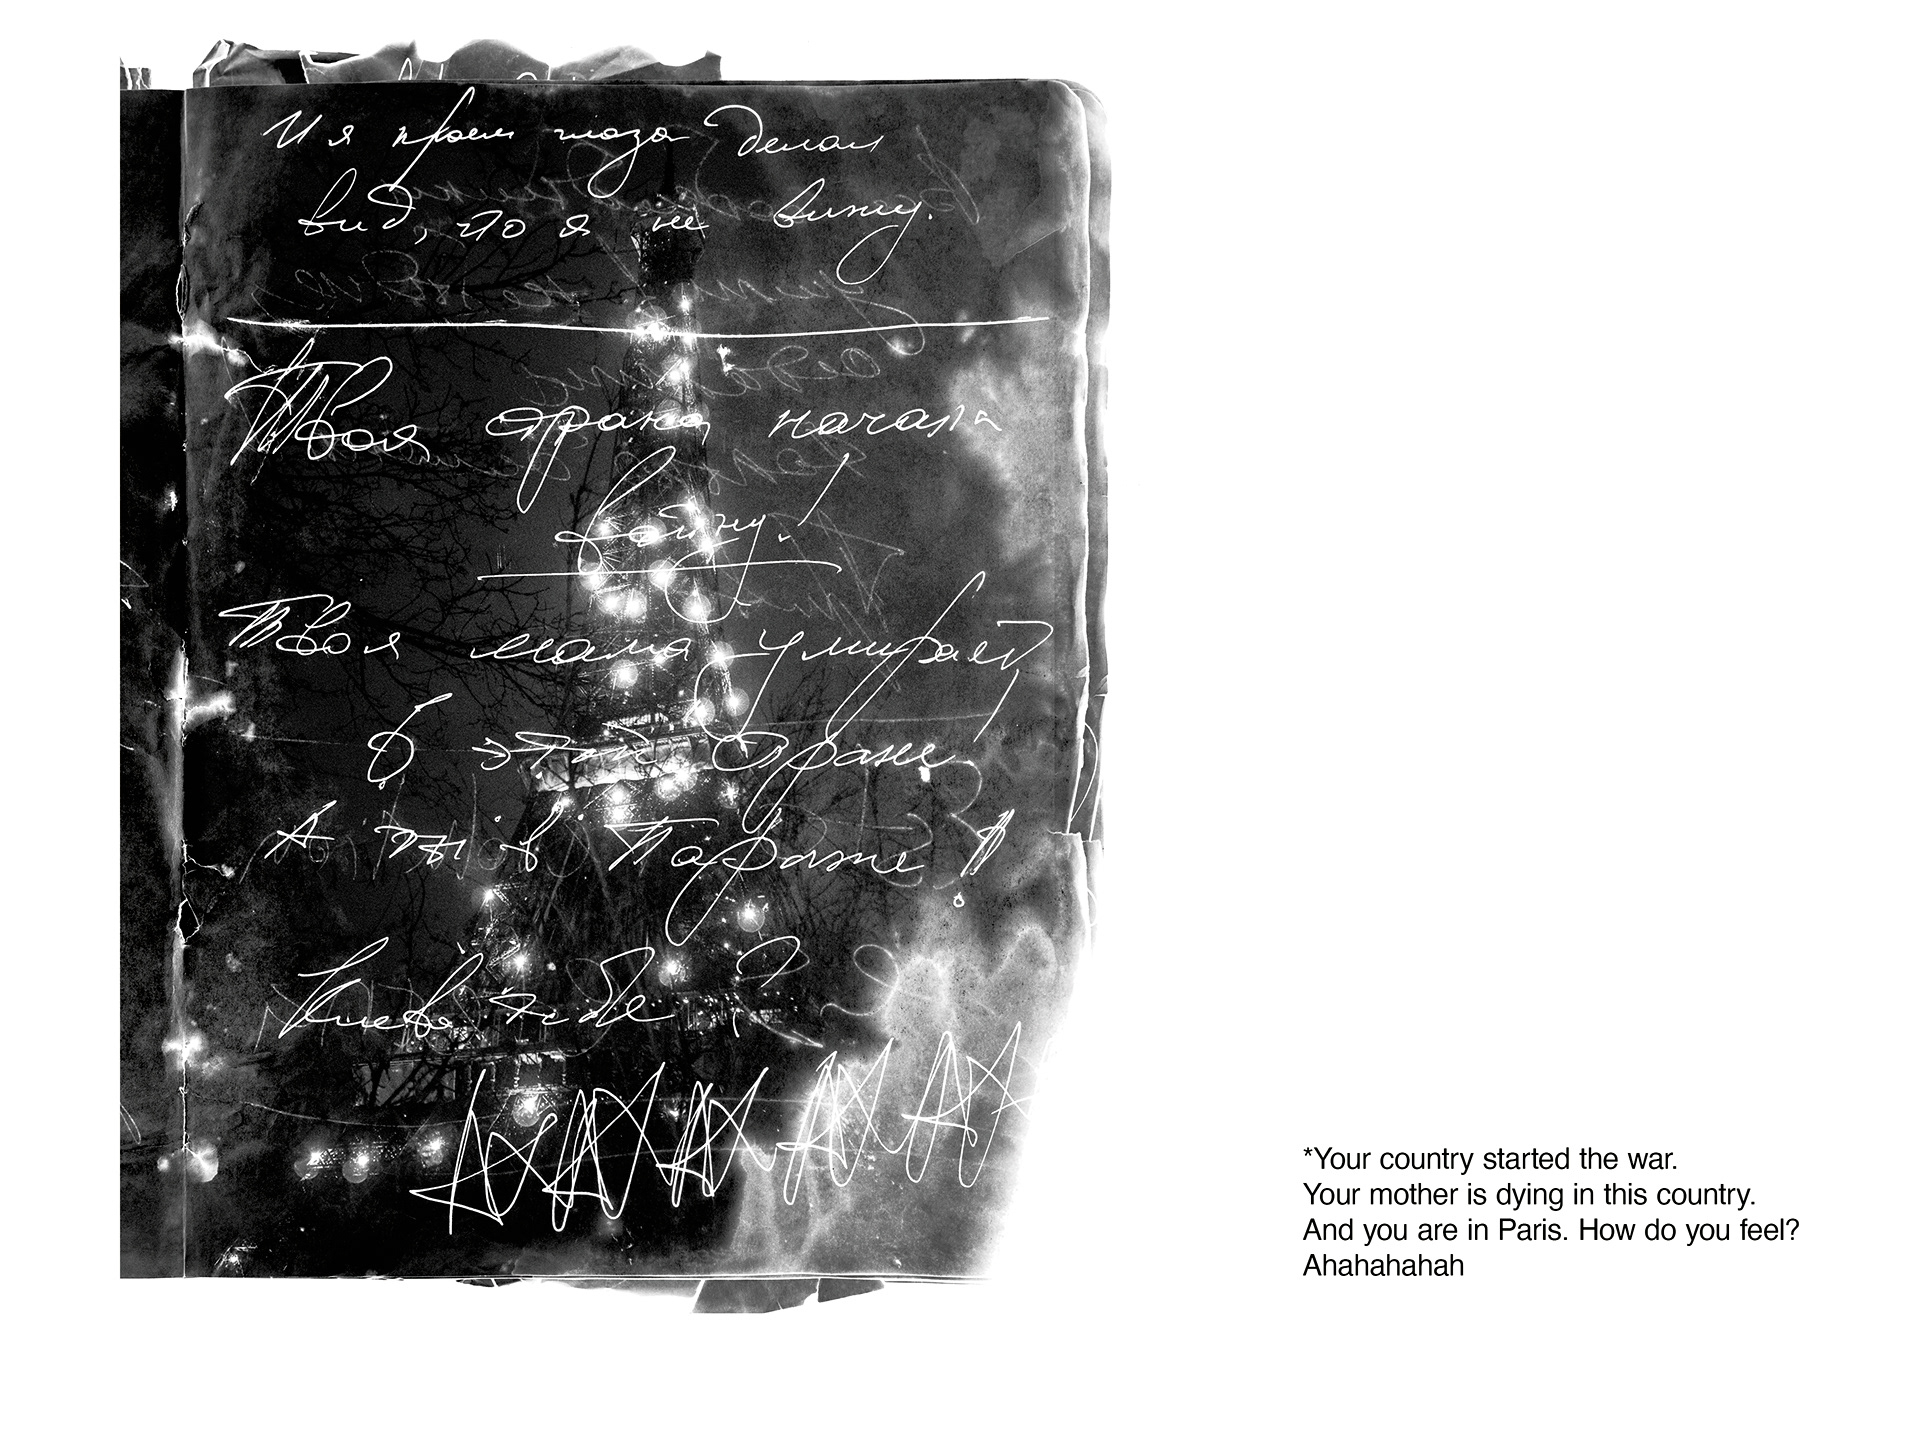 И я глаза делая
вид, что я не вижу.
Твоя страна начала
войну!
Твоя мама умирает
в этой стране!
А ты в Париже!
Клево тебе?
АХАХАХАХАХ
*Your country started the war.
Your mother is dying in this country.
And you are in Paris. How do you feel?
Ahahahahah